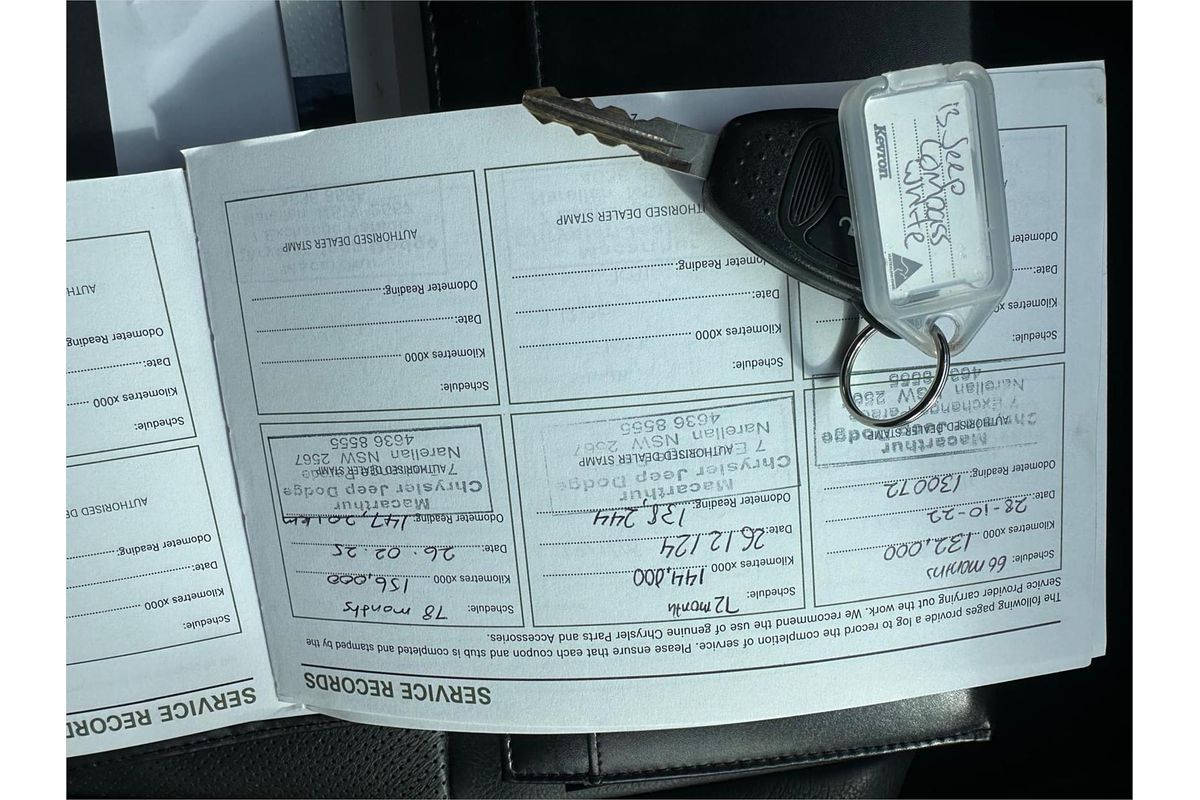 SERVICE RECORDS
The following pages provide a log to record the completion of service. Please ensure that each coupon and stub is completed and stamped by the
Service Provider carrying out the work. We recommend the use of genuine Chrysler Parts and Accessories.
Schedule: 66 months
Kilometres x000 132,000
Date: 28-10-22
Odometer Reading: 130072
AUTHORISED DEALER STAMP
Macarthur
Chrysler Jeep Dodge
7 Exchange Parade
Narellan NSW 2567
4636 8555
Schedule: 72 month
Kilometres x000 144,000
Date: 26/12/24
Odometer Reading: 138,244
AUTHORISED DEALER STAMP
Macarthur
Chrysler Jeep Dodge
Narellan NSW 2567
4636 8555
Schedule: 78 months
Kilometres x000 156,000
Date: 26.02.25
Odometer Reading: 147,201km
AUTHORISED DEALER STAMP
Macarthur
Chrysler Jeep Dodge
Narellan NSW 2567
4636 8555
Schedule:
Kilometres x000
Date:
Odometer
Schedule:
Kilometres x000
Date:
Odometer Reading:
AUTHORISED DEALER STAMP
Schedule:
Kilometres x000
Date:
Odometer Reading:
AUTHORISED DEALER STAMP
SERVICE RECORD
Schedule:
Kilometres x000
Date:
Odometer Reading:
AUTHORISED DE
Schedule:
Kilometres x000
Date:
Odometer Reading:
AUTH
13 Jeep
Compass
White
Kevron
2